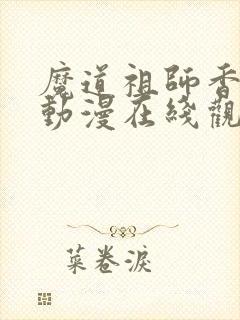 魔道祖師香
動漫在綫觀
菜卷淚